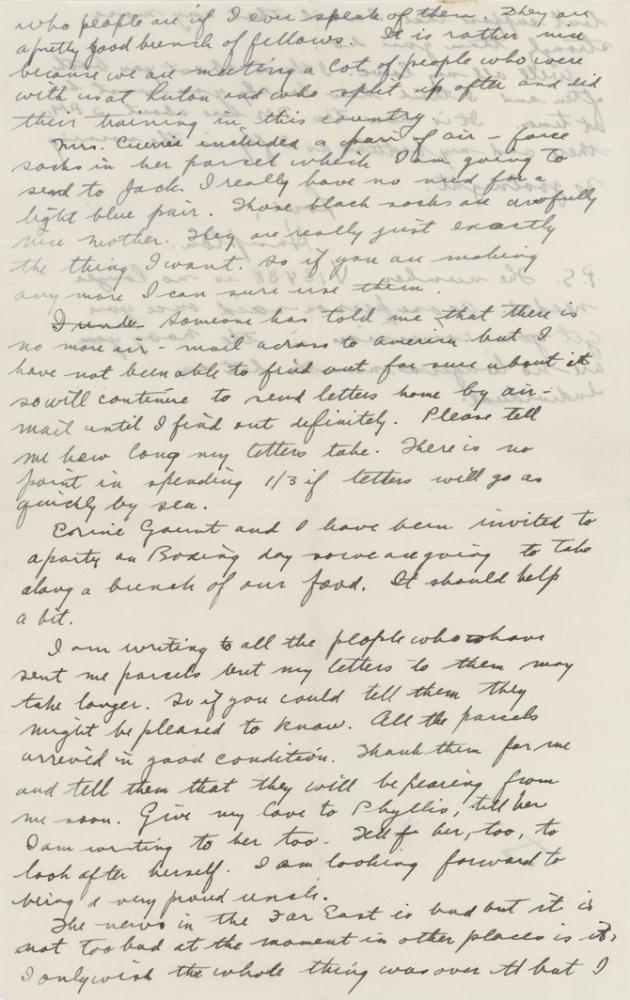 who people are if I ever speak of them. They are
a pretty good bunch of fellows. It is rather nice
because we are meeting a lot of people who were
with us at Luton and who split up after and did
their training in this country.
Mrs. Currie included a pair of air-force
socks in her parcel which I am going to
send to Jack. I really have no need for a
light blue pair. Those black socks are awfully
nice mother. They are really just exactly
the thing I want. So if you are making
any more I can sure use them.
I unde Someone has told me that there is
no more air-mail across to america but I
have not been able to find out for sure about it
so will continue to send letters home by air-
mail until I find out definitely. Please tell
me how long my letters take. There is no
point in spending 1/3 if letters will go as
quickly by sea.
Gaunt and I have been invited to
a party on Boxing day so we are going to take
along a bunch of our food. It should help
a bit.
I am writing to all the people who have
sent me parcels but my letters to them may
take longer. So if you could tell them they
might be pleased to know. All the parcels
arrived in good condition. Thank them for me
and tell them that they will be hearing from
me soon. Give my love to Phyllis, tell her
I am writing to her too. Tell her, too, to
look after herself. I am looking forward to
being a very proud uncle.
The news in the Far East is bad but it is
not too bad at the moment in other places is it?
I only wish the whole thing was over but I